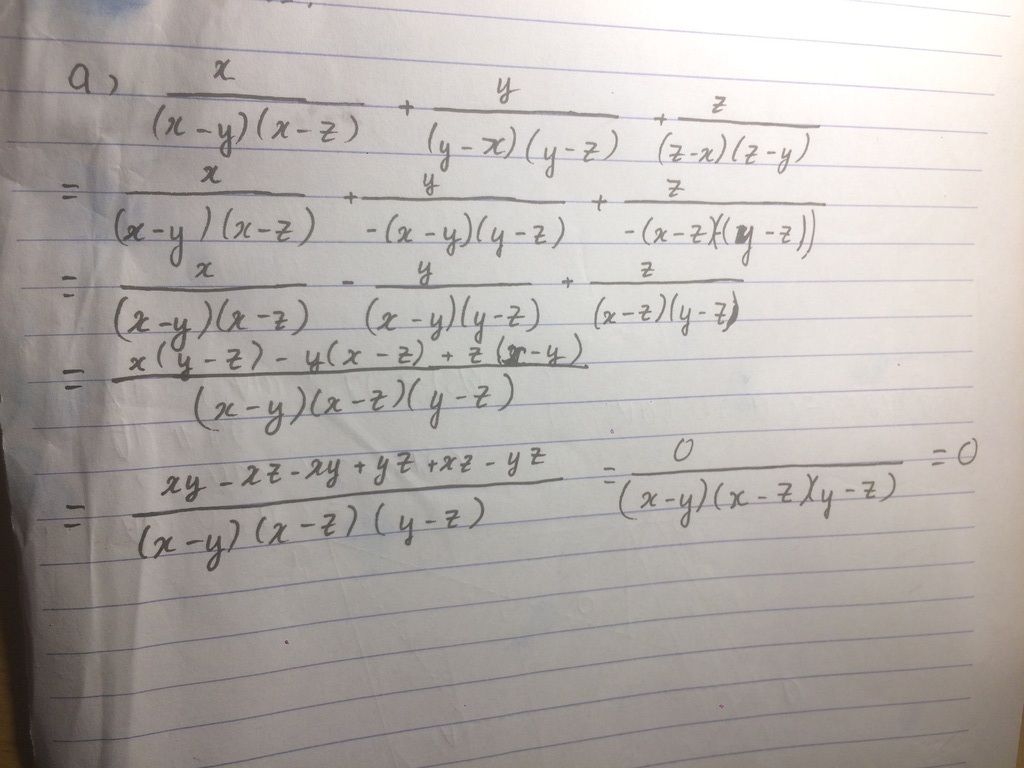 a) x/((x-y)(x-z)) + y/((y-x)(y-z)) + z/((z-x)(z-y))
= x/((x-y)(x-z)) + y/(-(x-y)(y-z)) + z/(-(x-z)(-(y-z)))
= x/((x-y)(x-z)) - y/((x-y)(y-z)) + z/((x-z)(y-z))
= (x(y-z) - y(x-z) + z(x-y))/((x-y)(x-z)(y-z))
= (xy - xz - xy + yz + xz - yz)/((x-y)(x-z)(y-z)) = 0/((x-y)(x-z)(y-z)) = 0